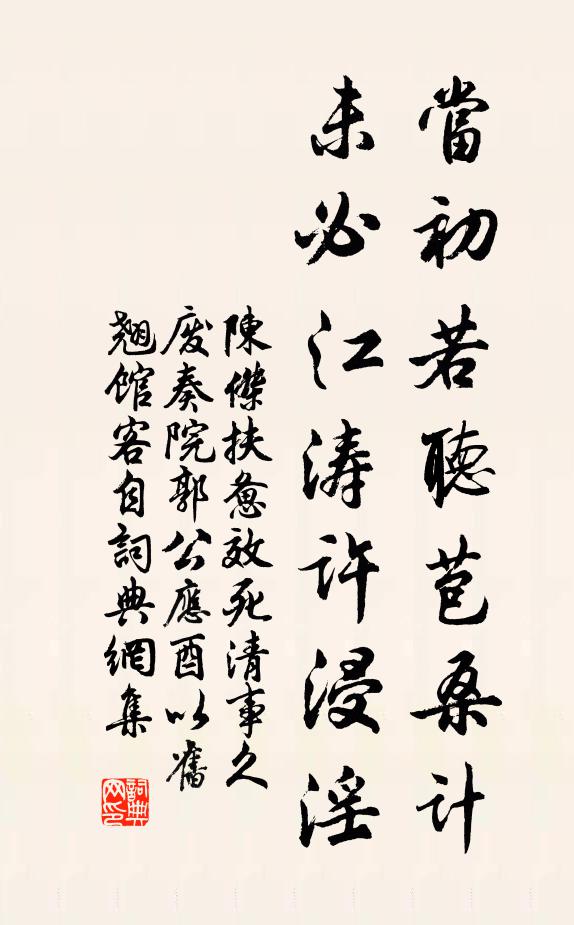 當初若聽苞桑計
未必江濤許浸淫
陳傑扶憊效死清事久
廢奏院郭公應酉以舊
翹館客自詞典網集
詞典网印